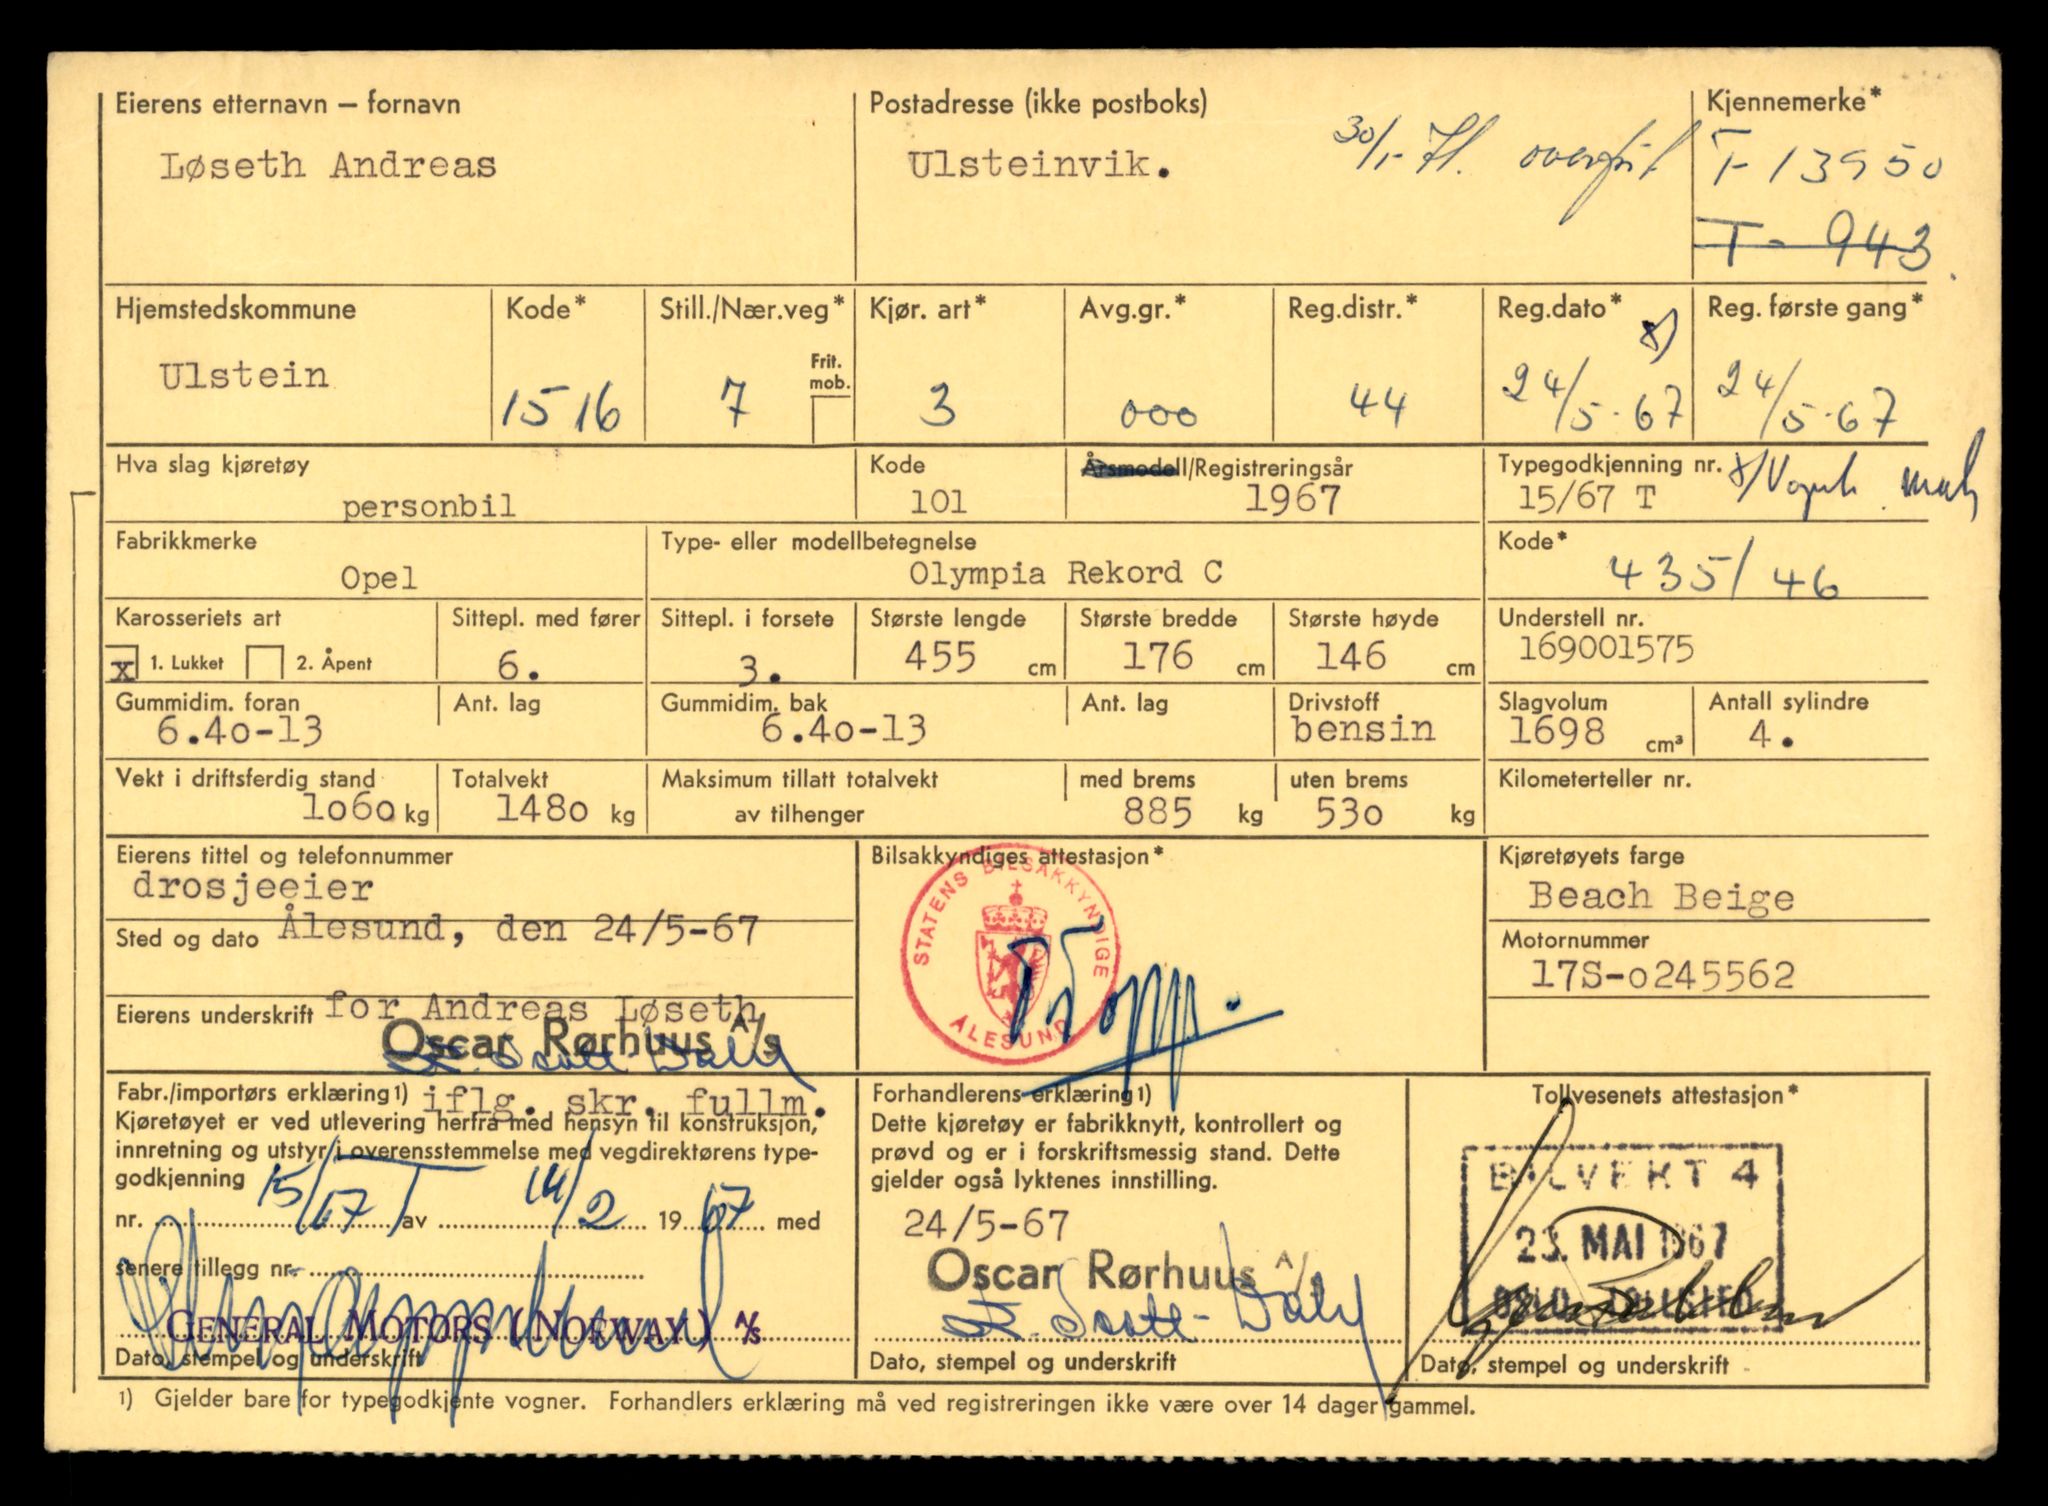 Eierens etternavn – fornavn
Løseth Andreas
Postadresse (ikke postboks)
Ulsteinvik.
30/1-71.
Kjennemerke*
T-13950
T-943.
Hjemstedskommune
Ulstein
Kode*
1516
Still./Nær.veg*
7
Frit.
mob.
Kjør. art*
3
Avg.gr.*
000
Reg.distr.*
44
Reg.dato*
24/5-67
Reg. første gang*
24/5-67
Hva slag kjøretøy
personbil
Kode
101
Årsmodell/Registreringsår
1967
Typegodkjenning nr.
15/67 T
Fabrikkmerke
Opel
Type- eller modellbetegnelse
Olympia Rekord C
Kode*
435/46
Karosseriets art
x 1. Lukket 2. Åpent
Sittepl. med fører
6.
Sittepl. i forsete
3.
Største lengde
455 cm
Største bredde
176 cm
Største høyde
146 cm
Understell nr.
169001575
Gummidim. foran
6.40-13
Ant. lag
Gummidim. bak
6.40-13
Ant. lag
Drivstoff
bensin
Slagvolum
1698 cm³
Antall sylindre
4.
Vekt i driftsferdig stand
1060 kg
Totalvekt
1480 kg
Maksimum tillatt totalvekt
av tilhenger
med brems
885 kg
uten brems
530 kg
Kilometerteller nr.
Eierens tittel og telefonnummer
drosjeeier
Sted og dato Ålesund, den 24/5-67
Eierens underskrift for Andreas Løseth
Oscar Rørhuus A/s
Bilsakkyndiges attestasjon*
STATENS BILSAKKYNDIGE
ÅLESUND
Kjøretøyets farge
Beach Beige
Motornummer
17S-0245562
Fabr./importørs erklæring1) iflg. skr. fullm.
Kjøretøyet er ved utlevering herfra med hensyn til konstruksjon,
innretning og utstyr i overensstemmelse med vegdirektørens type-
godkjenning
nr. 15/67 T av 14/2 1967 med
senere tillegg nr.
GENERAL MOTORS (NORWAY) A/S
Dato, stempel og underskrift
Forhandlerens erklæring1)
Dette kjøretøy er fabrikknytt, kontrollert og
prøvd og er i forskriftsmessig stand. Dette
gjelder også lyktenes innstilling.
24/5-67
Oscar Rørhuus A/s
Dato, stempel og underskrift
Tollvesenets attestasjon*
BILVERT 4
23. MAI 1967
OSLO TOLLSTED
Dato, stempel og underskrift
1) Gjelder bare for typegodkjente vogner. Forhandlers erklæring må ved registreringen ikke være over 14 dager gammel.